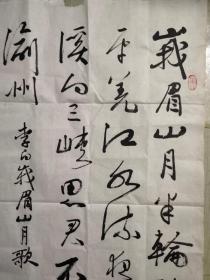 峨眉山月半輪
平羌江水流夜
溪向三峡思君不
渝州 李白峨眉山月歌